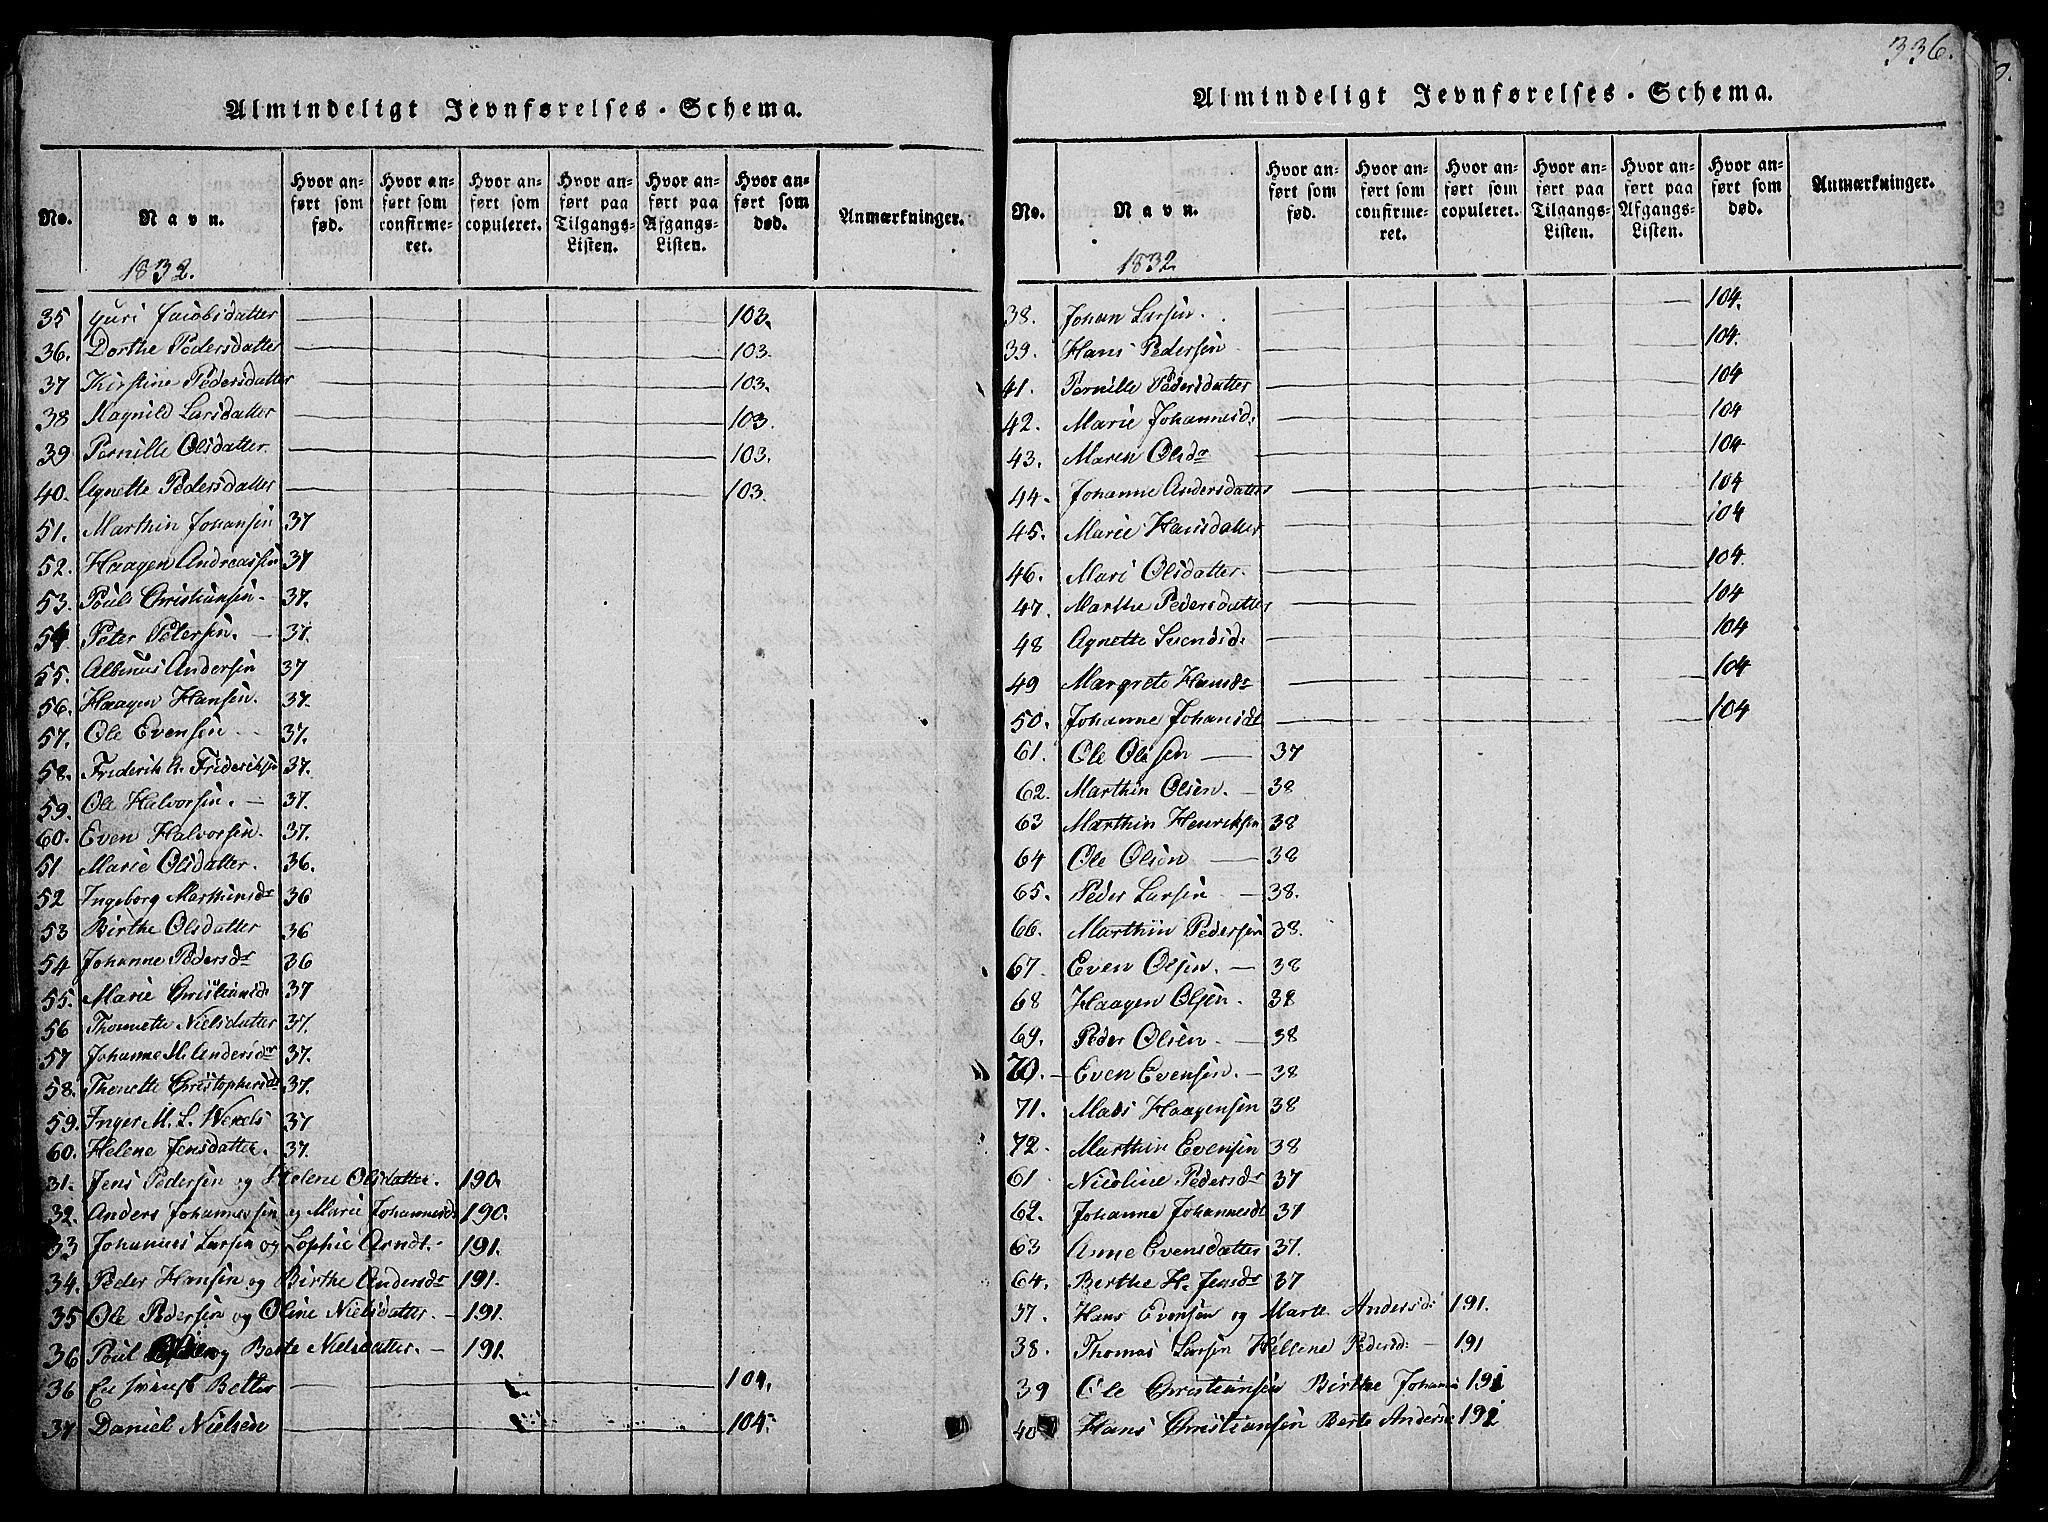 Almindeligt Jevnførelses-Schema.
No. Navn. Hvor anført som fød. Hvor anført som confirmeret. Hvor anført som copuleret. Hvor anført paa Tilgangs-Listen. Hvor anført paa Afgangs-Listen. Hvor anført som død. Anmærkninger.
1832.
35 Guri Jacobsdatter 103.
36. Dorthe Pedersdatter 103.
37 Kirstine Pedersdatter 103.
38 Magnild Larsdatter 103.
39 Pernille Olsdatter 103.
40. Agnette Pedersdatter 103.
51. Marthin Johansen 37
52. Haagen Andreassen 37
53. Poul Christiansen. 37.
54 Peter Petersen. — 37.
55. Albinus Andersen 37
56. Haagen Hansen. 37.
57. Ole Evensen 37.
58. Friderik A. Frideriksen 37.
59. Ole Halvorsen. — 37.
60. Even Halvorsen. 37.
51 Marie Olsdatter. 36.
52 Ingeborg Marthinsdr 36
53 Birthe Olsdatter 36
54 Johanne Pedersdr 36
55. Marie Christiansd: 37
56 Thonnette Nielsdatter 37.
57 Johanne M. Andersdr 37.
58. Thonette Christophersdt 37.
59. Inger M. L. 37
60. Helene Jensdatter. 37.
31. Jens Pedersen og Helene Olsdatter. 190.
32. Anders Johannessen og Marie Johannesd: 190.
33 Johannes Larsen og Sophie Arndt. 191.
34. Peder Hansen og Birthe Andersdr 191.
35 Ole Pedersen og Oline Nielsdatter. — 191.
36 Poul Berte Nielsdatter. — 191.
36 En svensk Betler 104.
37 Daniel Nielsen 104.
336.
Almindeligt Jevnførelses-Schema.
No. Navn. Hvor anført som fød. Hvor anført som confirmeret. Hvor anført som copuleret. Hvor anført paa Tilgangs-Listen. Hvor anført paa Afgangs-Listen. Hvor anført som død. Anmærkninger.
1832
38. Johan Larsen. 104.
39. Hans Pedersen 104.
41. Pernille Pedersdatter 104
42. Marie Johannesd: 104
43. Maren Olsdr 104
44. Johanne Andersdatter 104
45. Marie Hansdatter 104
46. Mari Olsdatter. 104.
47. Marthe Pedersdatter 104
48 Agnette Svendsd: 104
49 Margrete Hansdr 104
50. Johanne Johansdt 104
61. Ole Olesen — 37
62. Marthin Olsen. — 38
63 Marthin Henriksen 38
64 Ole Olsen — 38
65. Peder Larsen — 38.
66. Marthin Pedersen 38.
67. Even Olsen. — 38
68 Haagen Olsen. 38
69. Peder Olsen. — 38
70. — Even Evensen. — 38
71. Mads Haagensen 38
72. Marthin Evensen 38
61 Nicoline Pedersdr 37
62. Johanne Johannesdt 37
63 Anne Evensdatter 37.
64. Berthe H. Jensdr 37
37. Hans Evensen og Marte Andersd: 191.
38. Thomas Larsen Hellene Pedersd: — 191
39 Ole Christiansen Birthe Johans 191
40 Hans Christiansen Berte Anders: 191